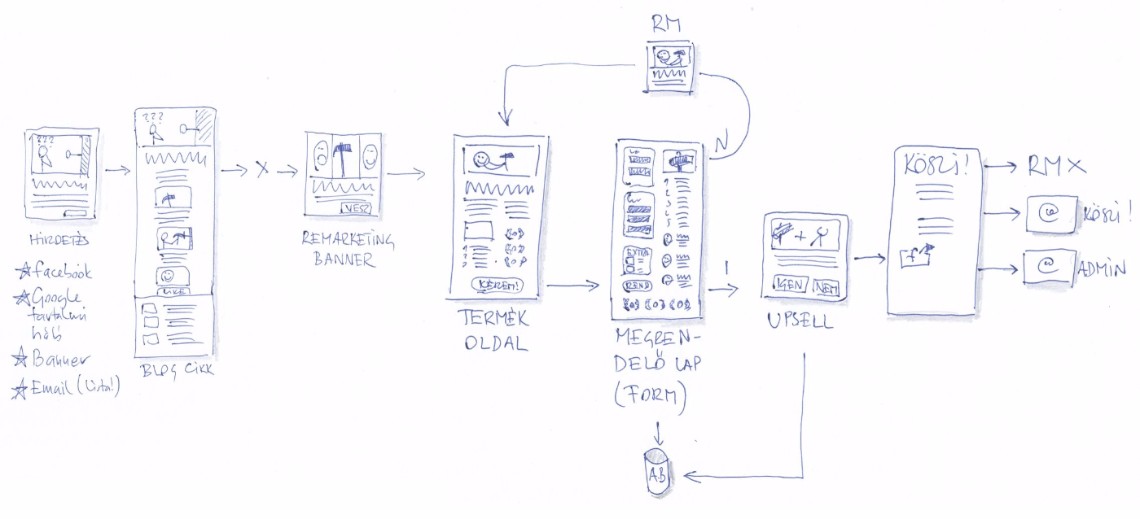 RM
???
???
HIRDETÉS
★ facebook
★ Google
tartalmi
háló
★ Banner
★ Email (lista!)
LIKE
BLOG CIKK
X
VESZ
REMARKETING
BANNER
KÉREM!
TERMÉK
OLDAL
N
EXTRA
REND
1
2
3
I
MEGREN-
DELŐ LAP
(FORM)
AB
+
IGEN
NEM
UPSELL
KÖSZI!
f
RM X
@ KÖSZI!
@ ADMIN